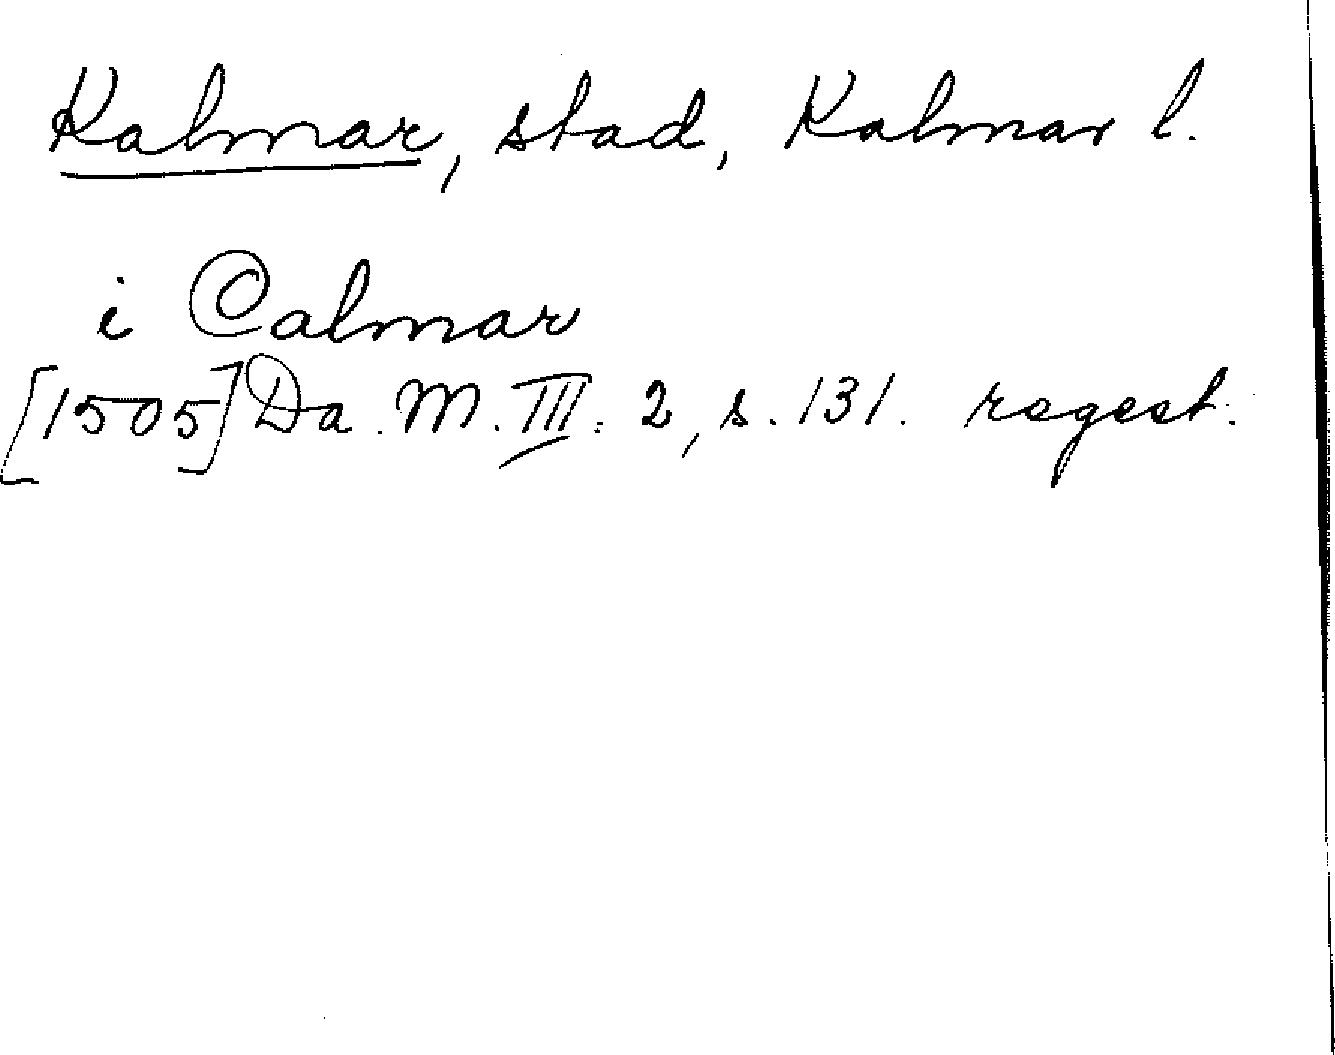 Kalmar, stad, Kalmar l.
i Calmar
[1505] Da. M. III. 2, s. 131. regest.